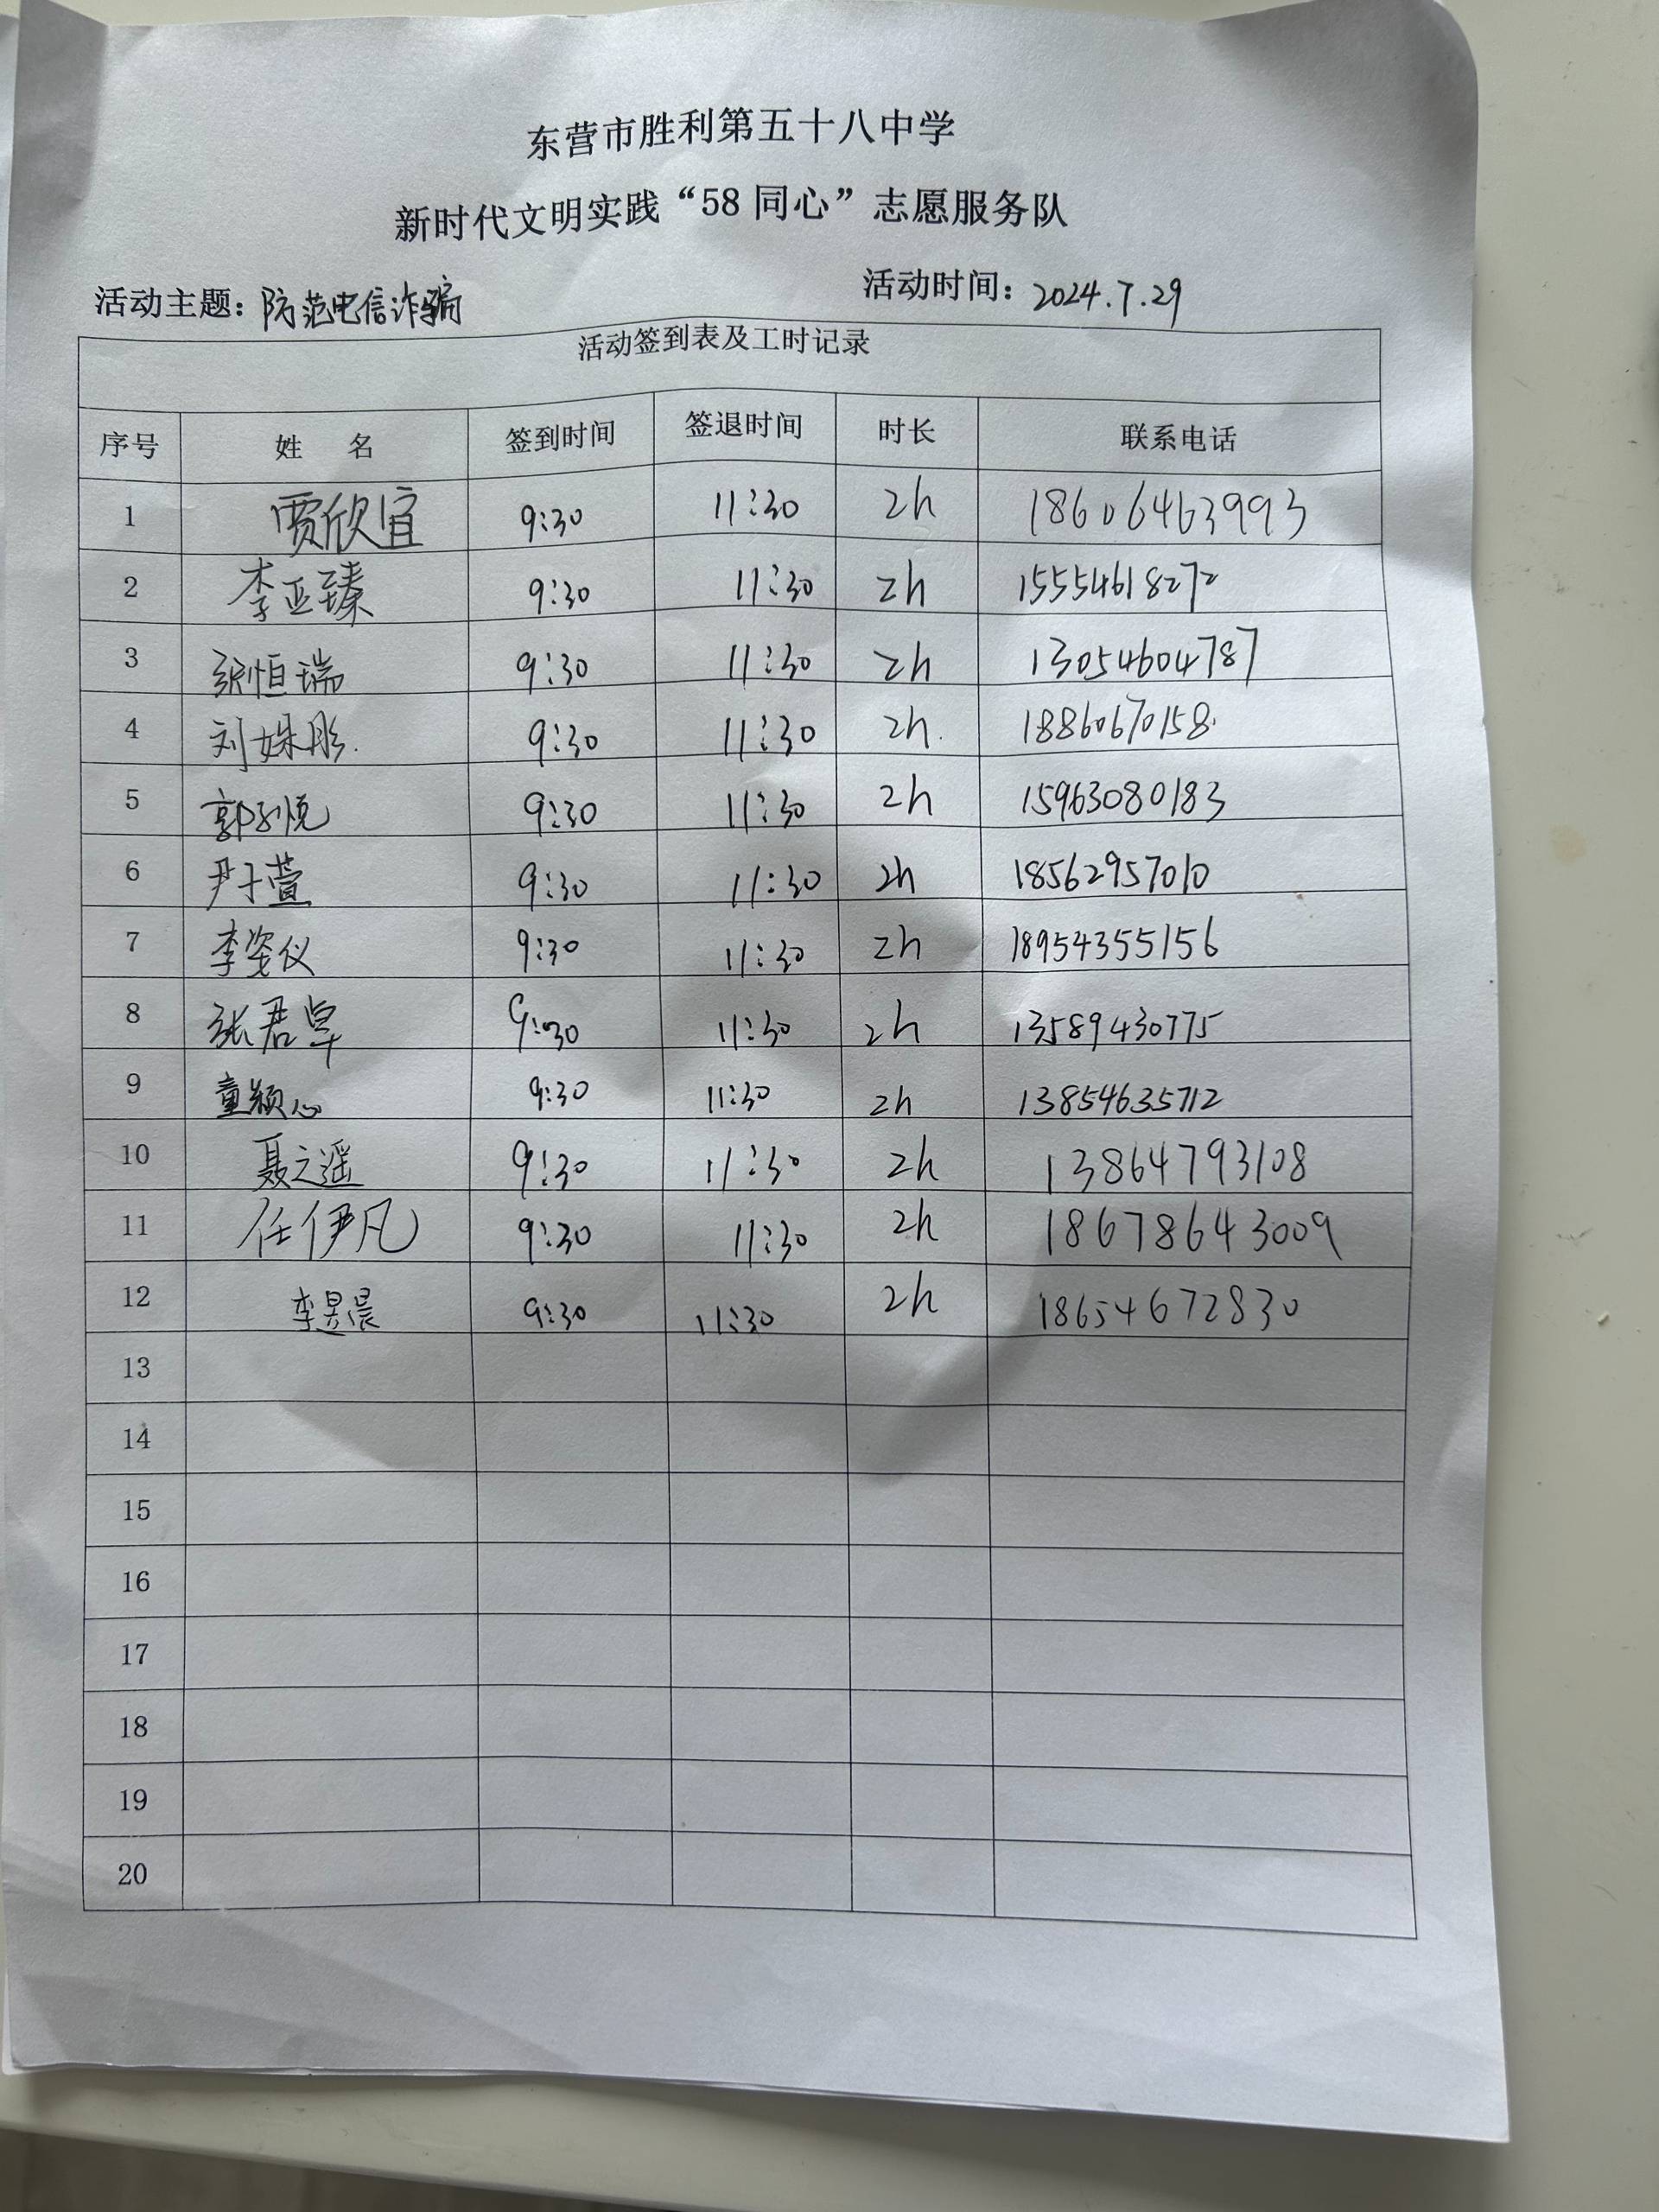 东营市胜利第五十八中学
新时代文明实践“58同心”志愿服务队
活动主题：防范电信诈骗 活动时间：2024.7.29
活动签到表及工时记录
序号 姓 名 签到时间 签退时间 时长 联系电话
1 贾欣宜 9:30 11:30 2h 18606463993
2 李亚臻 9:30 11:30 2h 15554618272
3 张恒瑞 9:30 11:30 2h 13054604787
4 刘姝彤. 9:30 11:30 2h. 18860670158.
5 郭子悦 9:30 11:30 2h 15963080183
6 尹于萱 9:30 11:30 2h 18562957010
7 李姿仪 9:30 11:30 2h 18954355156
8 张君卓 9:30 11:30 2h 13589430775
9 童颖心 9:30 11:30 2h 13854635712
10 聂之遥 9:30 11:30 2h 13864793108
11 任伊凡 9:30 11:30 2h 18678643009
12 李昱晨 9:30 11:30 2h 18654672830
13
14
15
16
17
18
19
20